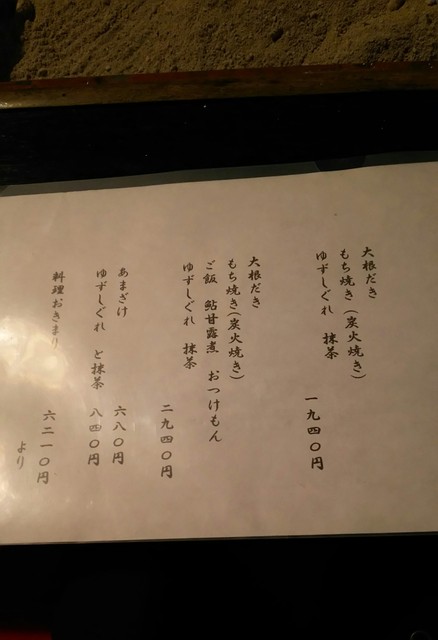 大根だき
もち焼き(炭火焼き)
ゆずしぐれ 抹茶
一九四〇円
大根だき
もち焼き(炭火焼き)
ご飯 鮎甘露煮 おつけもん
ゆずしぐれ 抹茶
二九四〇円
あまざけ 六八〇円
ゆずしぐれ と抹茶 八四〇円
料理おきまり 六二一〇円
より